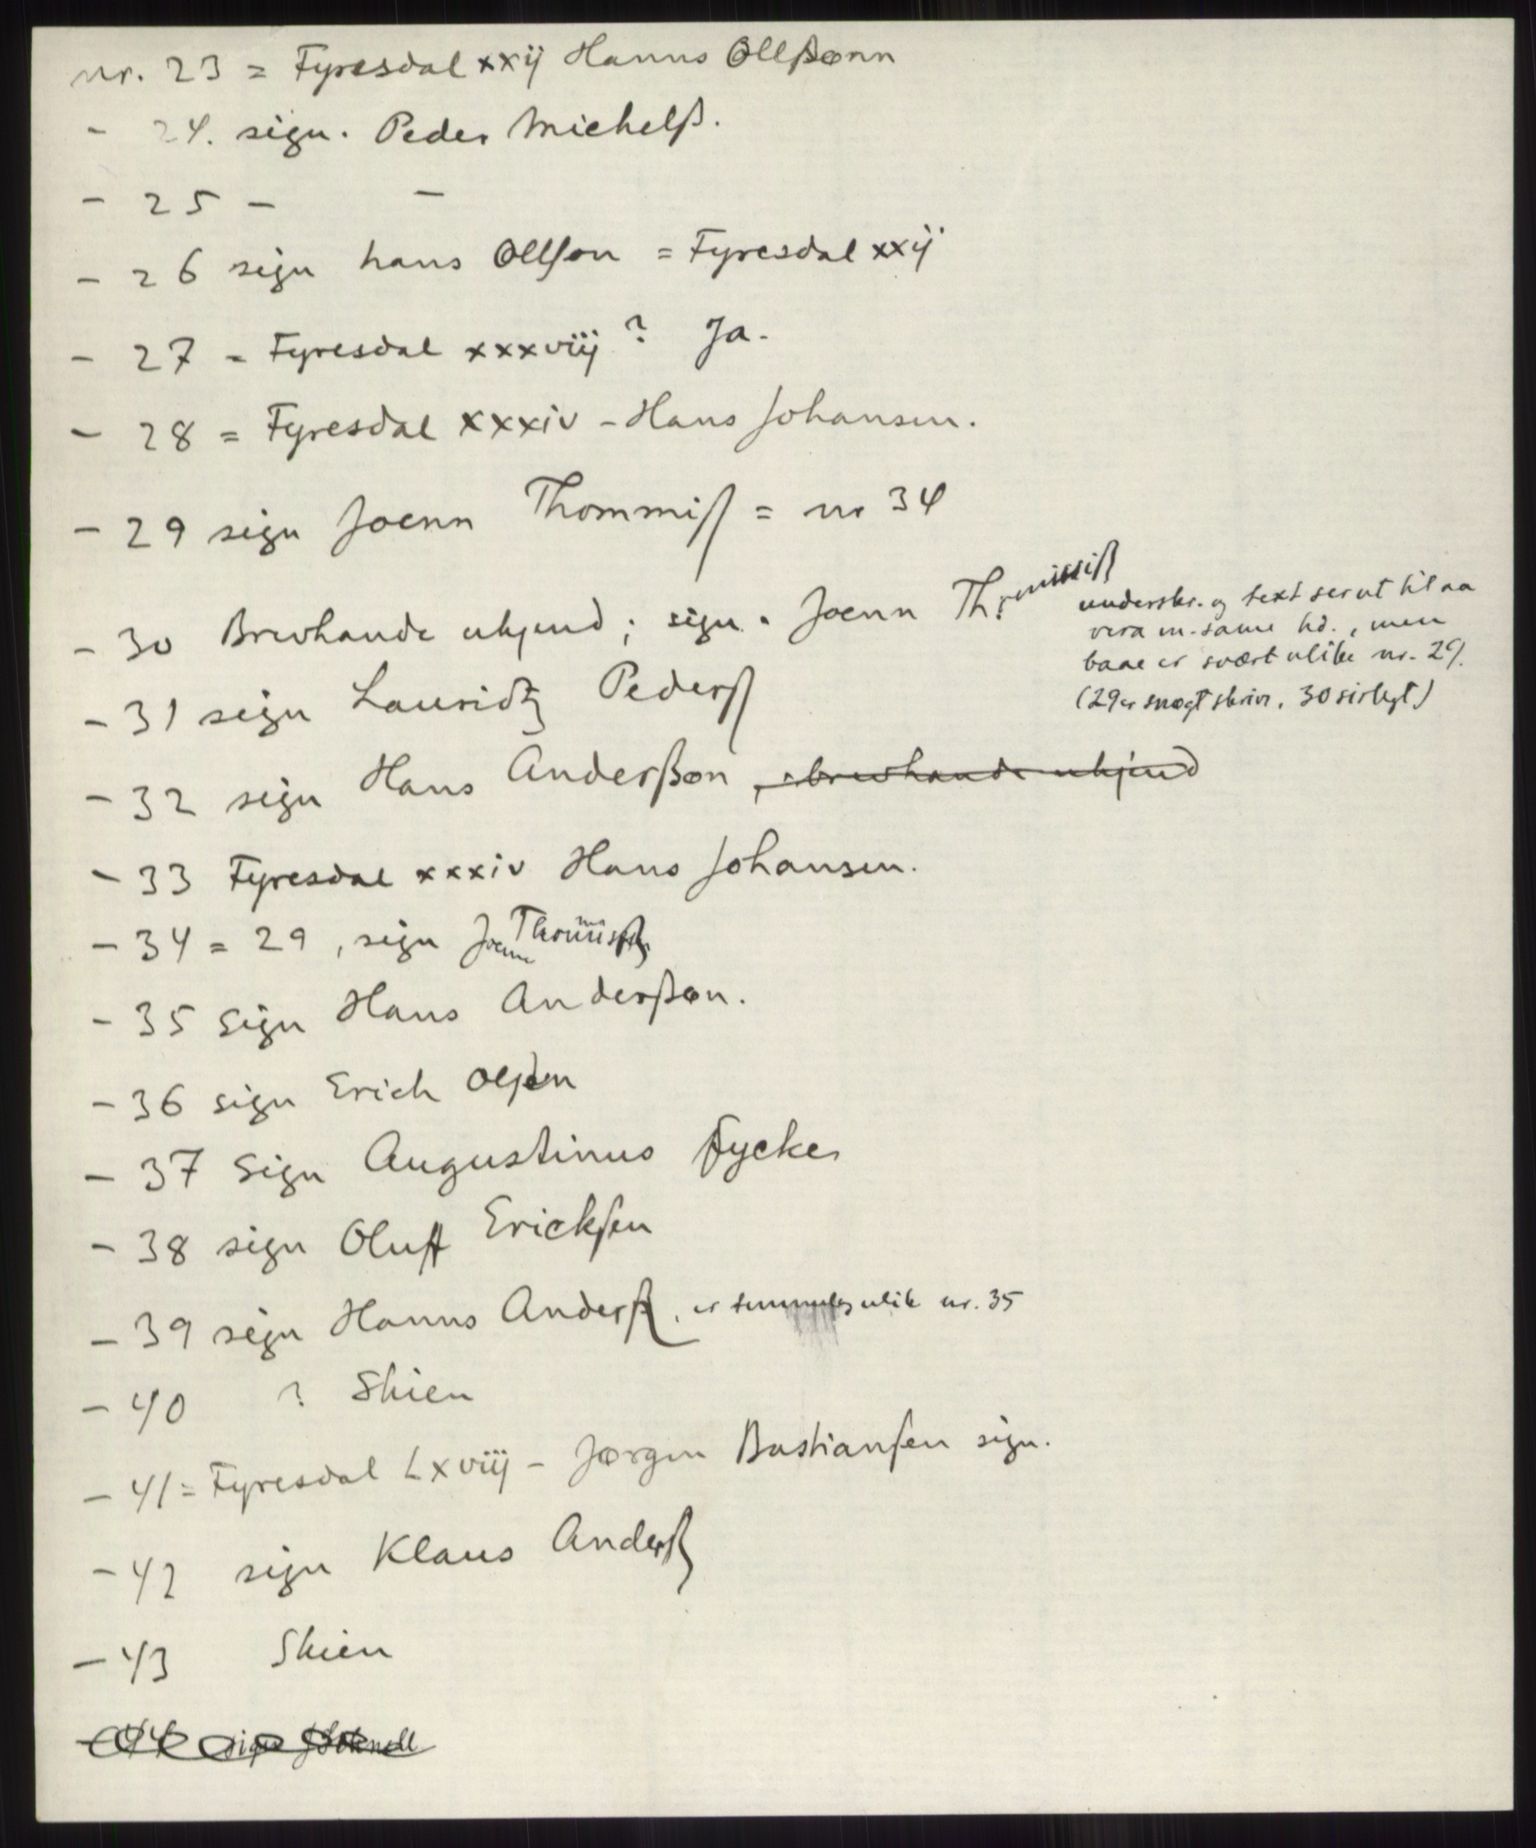 nr. 23 = Fyresdal xxij Hanns Ollßønn
- 24. sign. Peder Michelß.
- 25 - -
- 26 sign hans Ollſon = Fyresdal xxij
- 27 = Fyresdal xxxviij ? Ja.
- 28 = Fyresdal xxxiv - Hans Johansen.
- 29 sign Joenn Thommiß = nr 34
- 30 Brevhande ukjend; sign. Joenn
underskr. og text ser ut til aa
vera m. same hd., men
baae er svært ulike nr. 29.
(29 er snøgt skriv, 30 sirlegt)
- 31 sign Lauridtz Pederß
- 32 sign Hans Anderßøn, brevhande ukjend
- 33 Fyresdal xxxiv Hans Johansen.
- 34 = 29, sign Joenn
- 35 Sign Hans Anderßøn.
- 36 sign Erich
- 37 Sign Augustinus Fycker
- 38 sign Oluff Erickſen
- 39 sign Hanns Anderß. er ulik nr. 35
- 40 ? Skien
- 41 = Fyresdal Lxviij - Jørgen Bastianſen sign.
- 42 sign Klaus Anderß
- 43 Skien